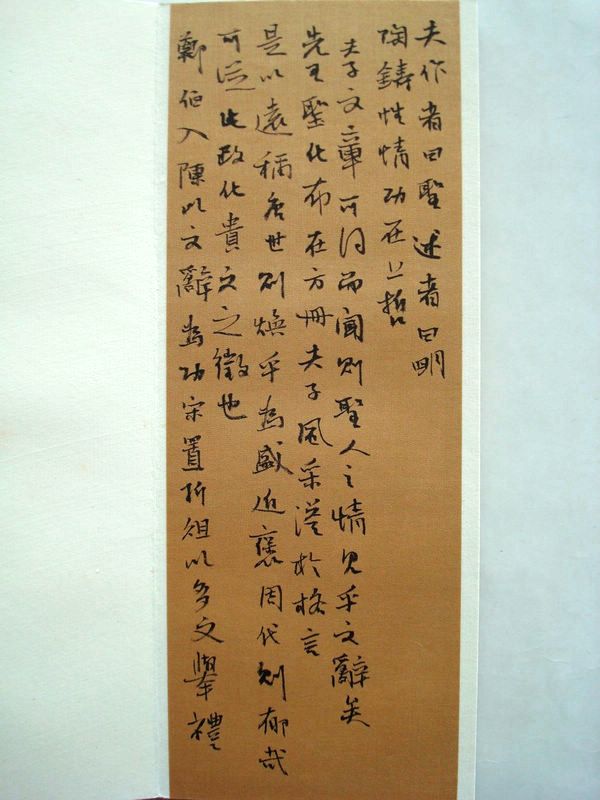 夫作者曰聖述者曰明
陶鑄性情功在上哲
夫子文章可得而聞則聖人之情見乎文辭矣
先王聖化布在方冊夫子風采溢於格言
是以遠稱唐世則煥乎為盛近褒周代則郁哉
可從此政化貴文之徵也
鄭伯入陳以文辭為功宋置折俎以多文舉禮